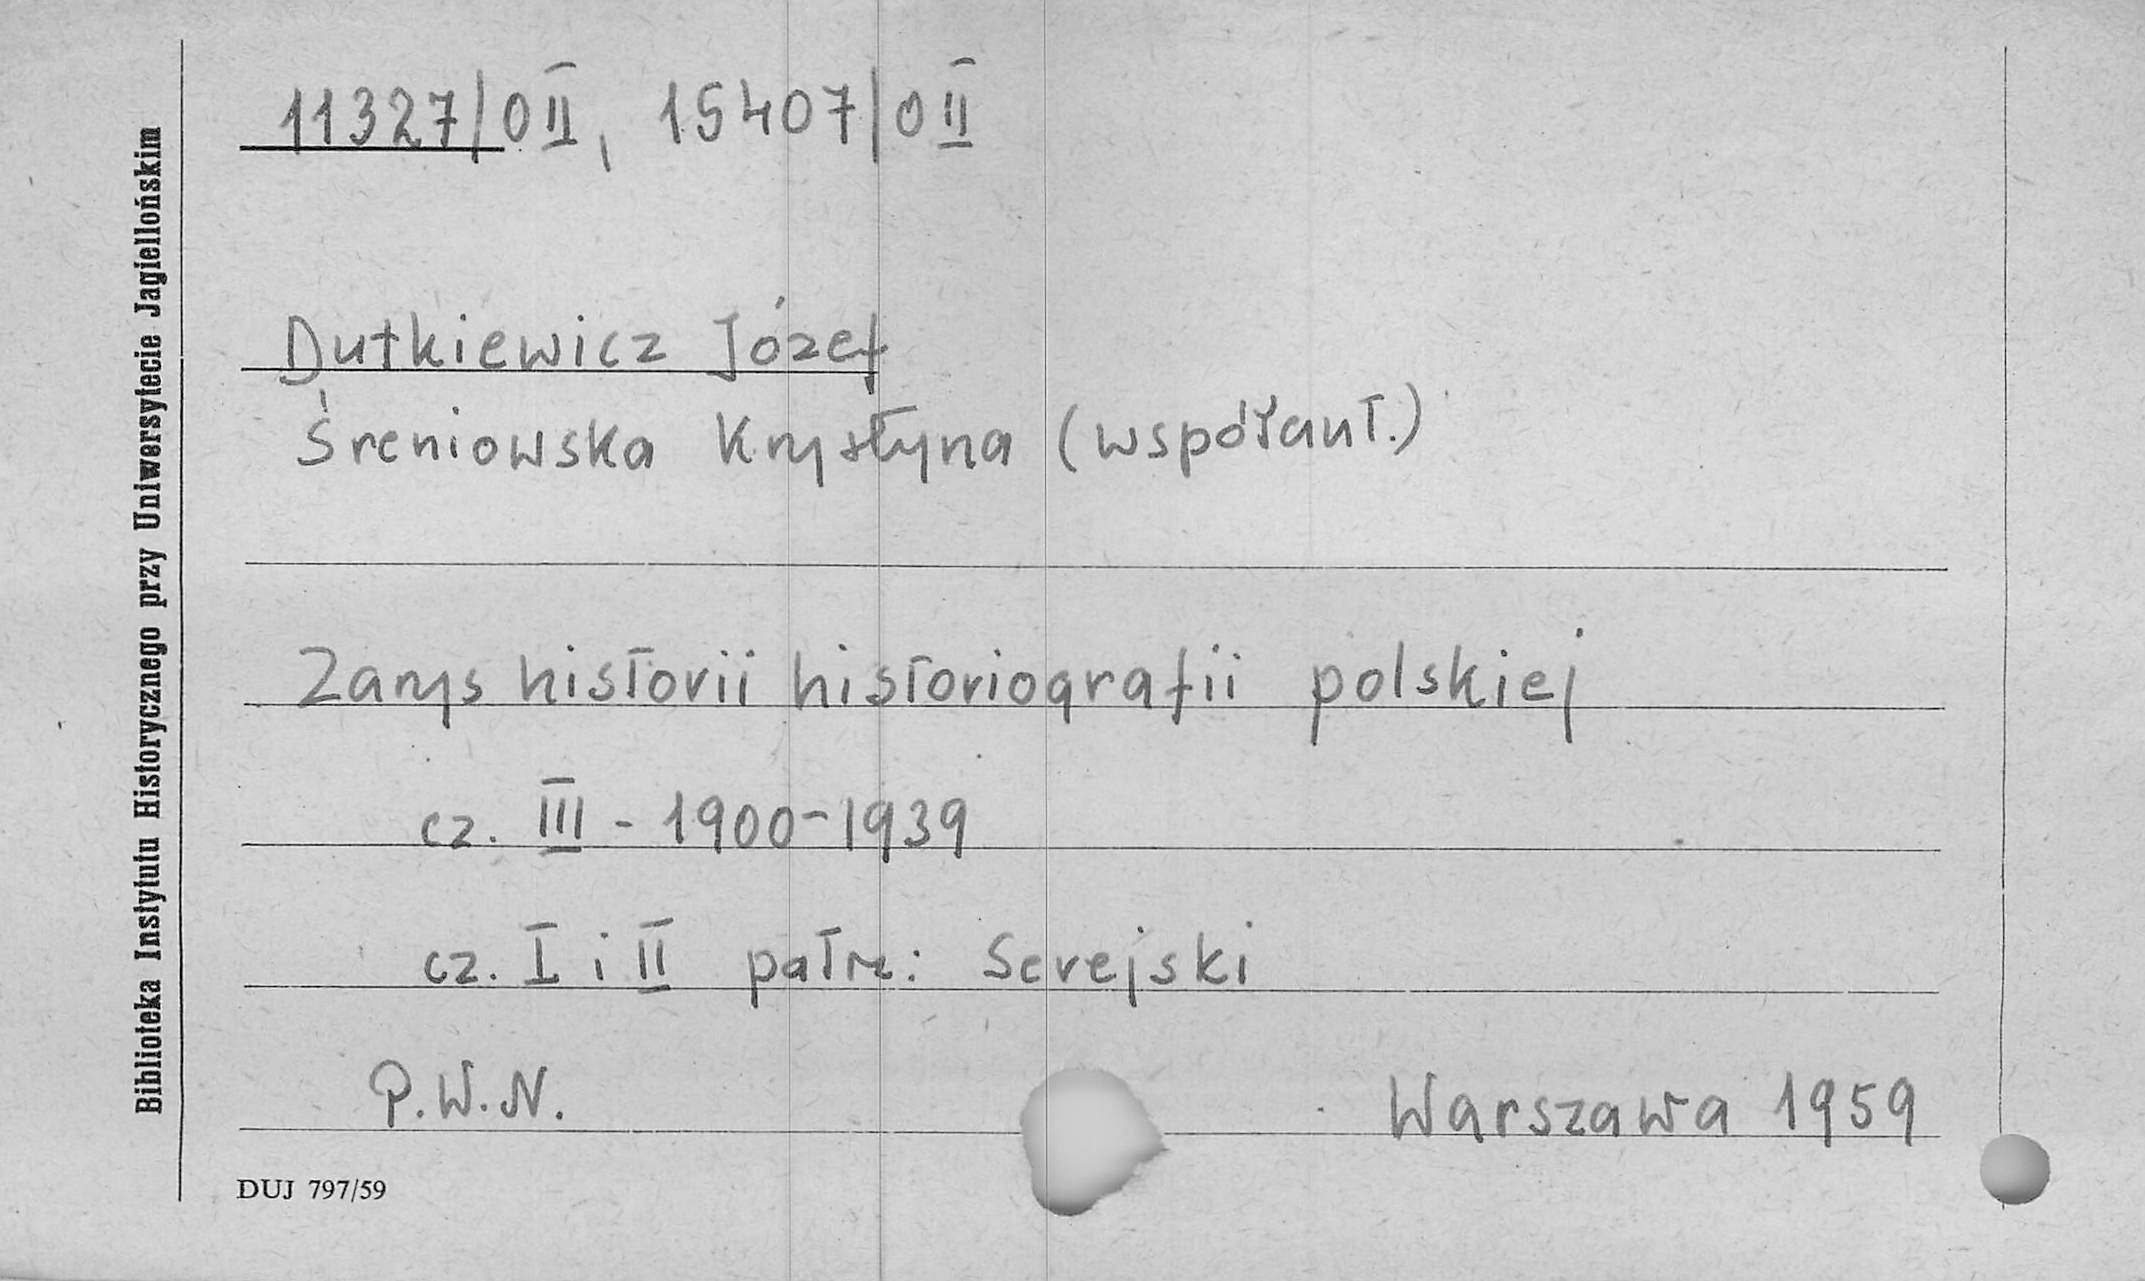 11327/0II, 15407/0II
Dutkiewicz Józef
Śreniowska Krystyna (współaut.)
Zarys historii historiografii polskiej
cz. III - 1900-1939
cz. I i II patrz: Serejski
P.W.N. Warszawa 1959
DUJ 797/59
Biblioteka Instytutu Historycznego przy Uniwersytecie Jagiellońskim